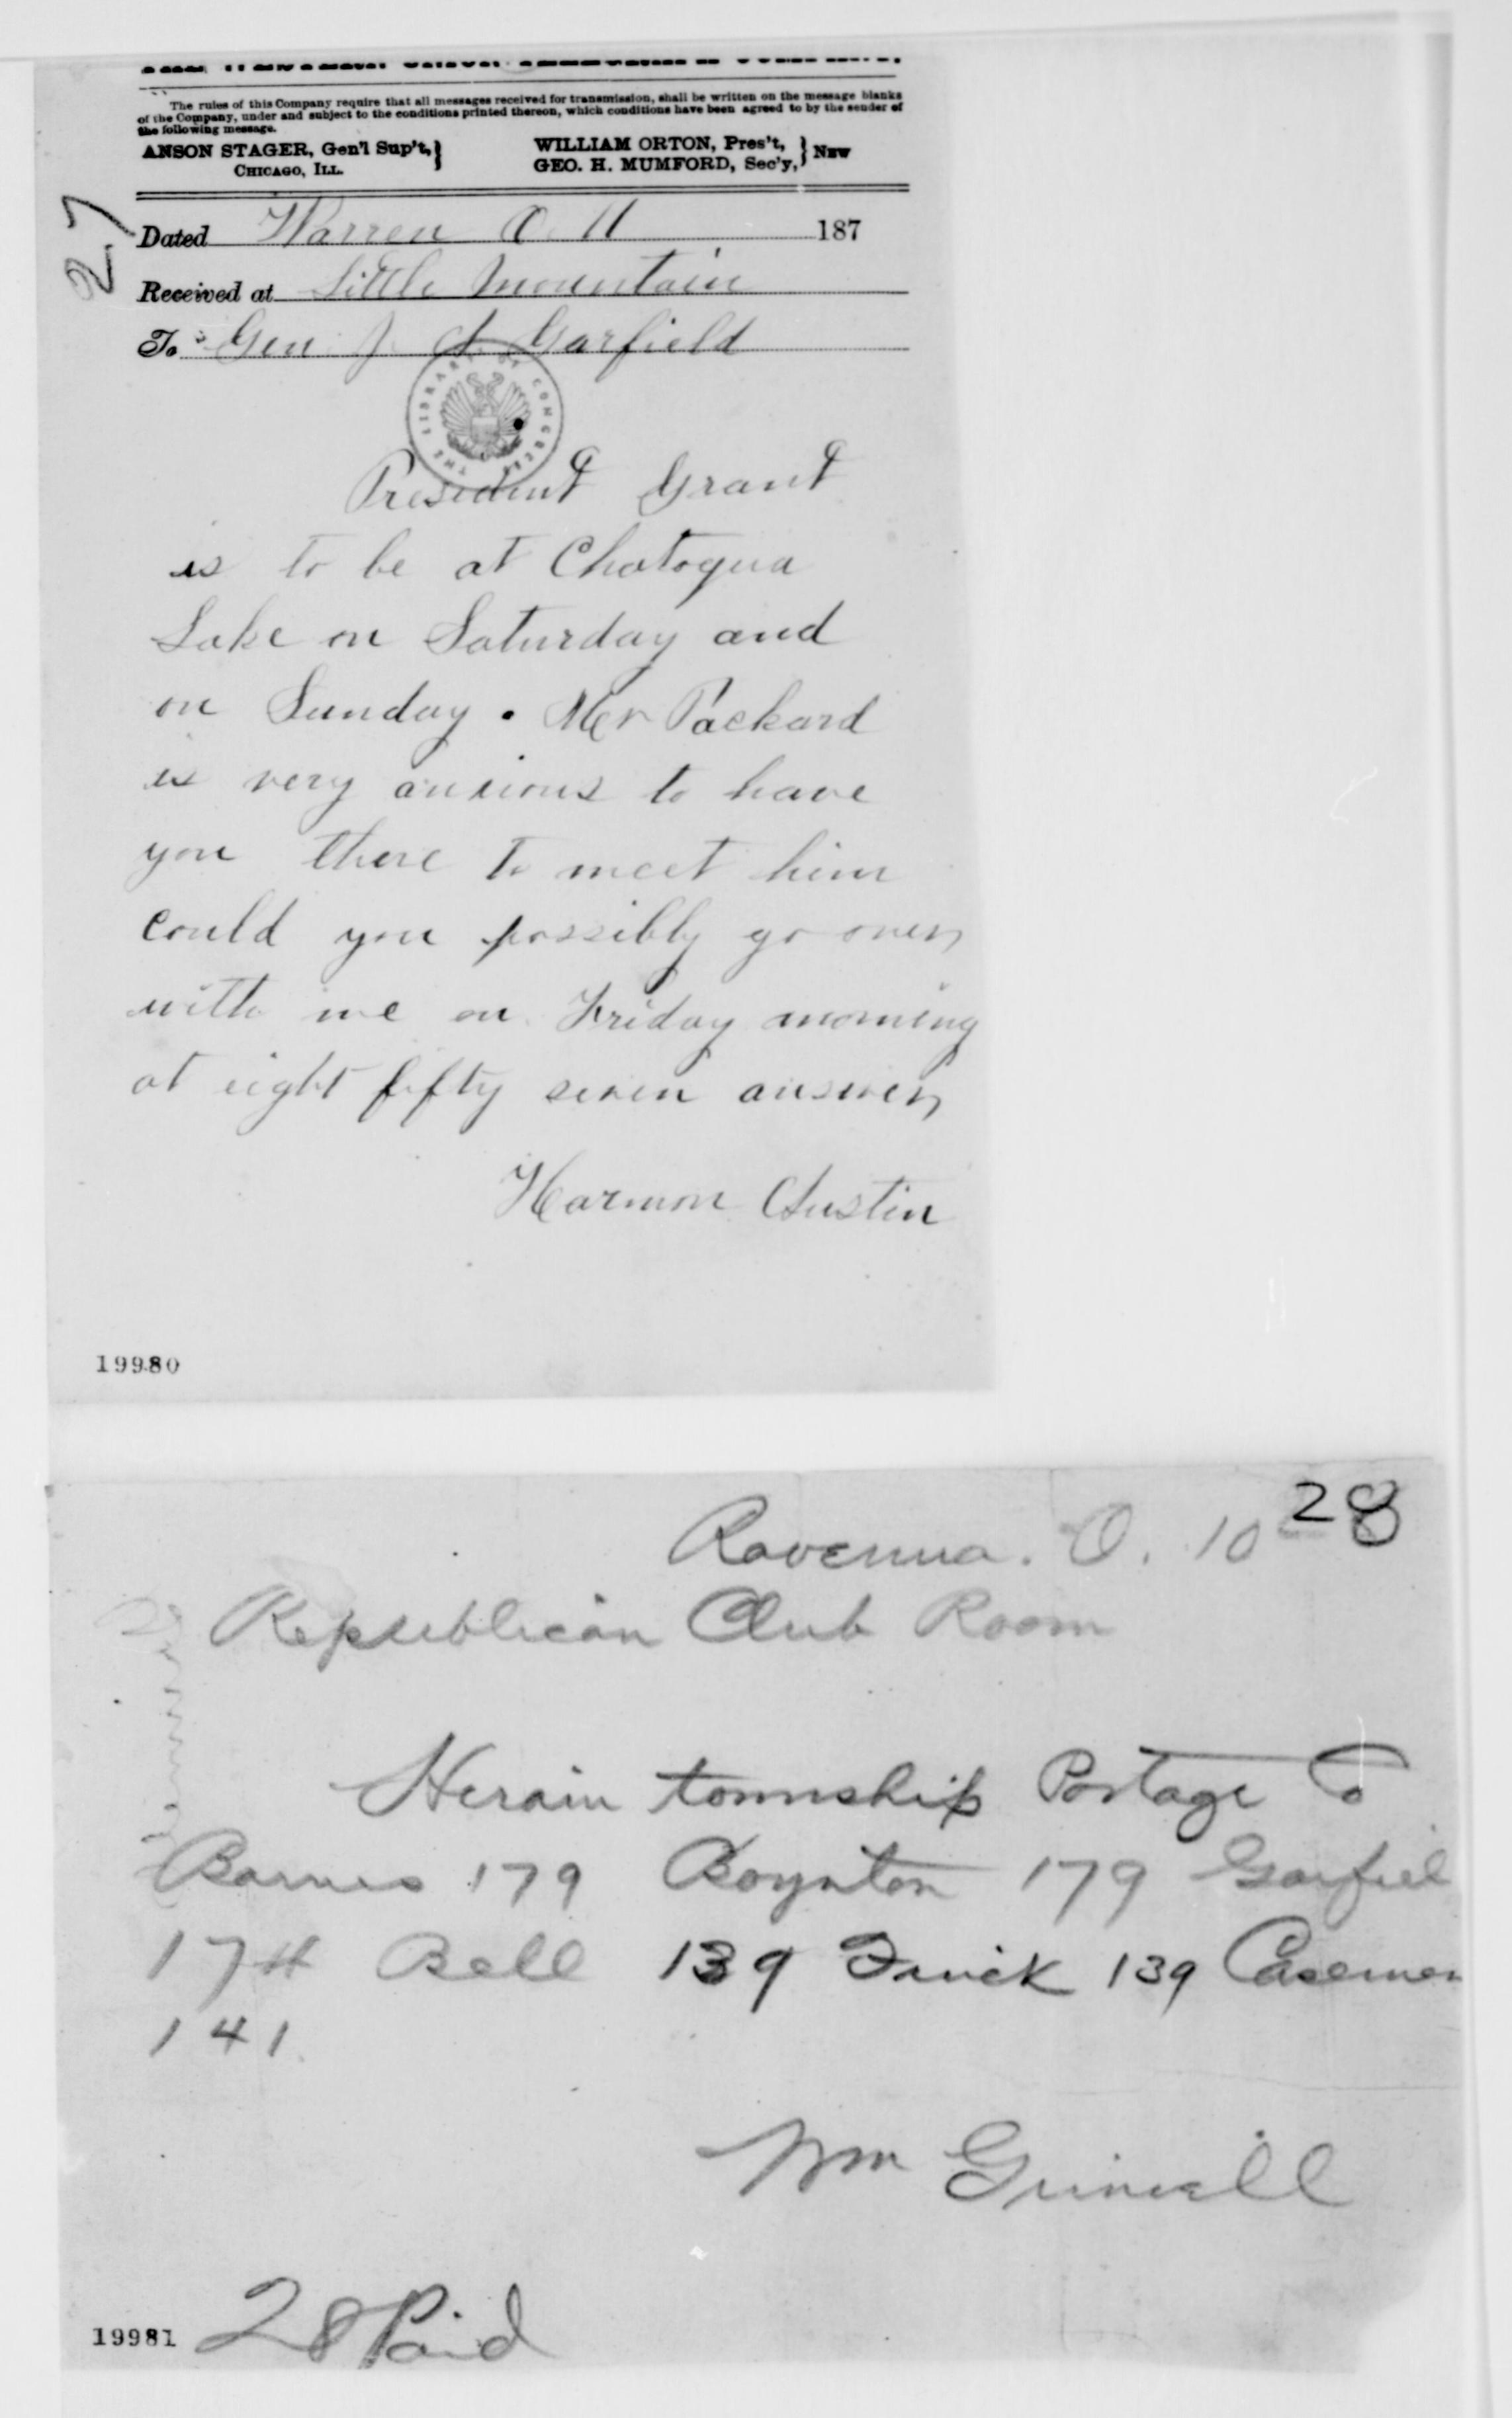 The rules of this Company require that all messages received for transmission, shall be written on the message blanks
of the Company, under and subject to the conditions printed thereon, which conditions have been agreed to by the sender of
the following message.
ANSON STAGER, Gen'l Sup't, } WILLIAM ORTON, Pres't, } NEW
CHICAGO, ILL. GEO. H. MUMFORD, Sec'y,
27
Dated Warren O. 11 187
Received at Little Mountain
To Gen J. A. Garfield
THE LIBRARY OF CONGRESS
President Grant
is to be at Chatoqua
Lake on Saturday and
on Sunday. Mr Packard
is very anxious to have
you there to meet him
could you possibly go over
with me on Friday morning
at eight fifty seven answer
Harmon Austin
19980
28
Ravenna. O. 10
Republican Club Room
Hiram township Portage Co
Barnes 179 Boynton 179 Garfiel
174 Bell 139 Frick 139 Casemen
141
Wm Grinnell
28 Paid
19981